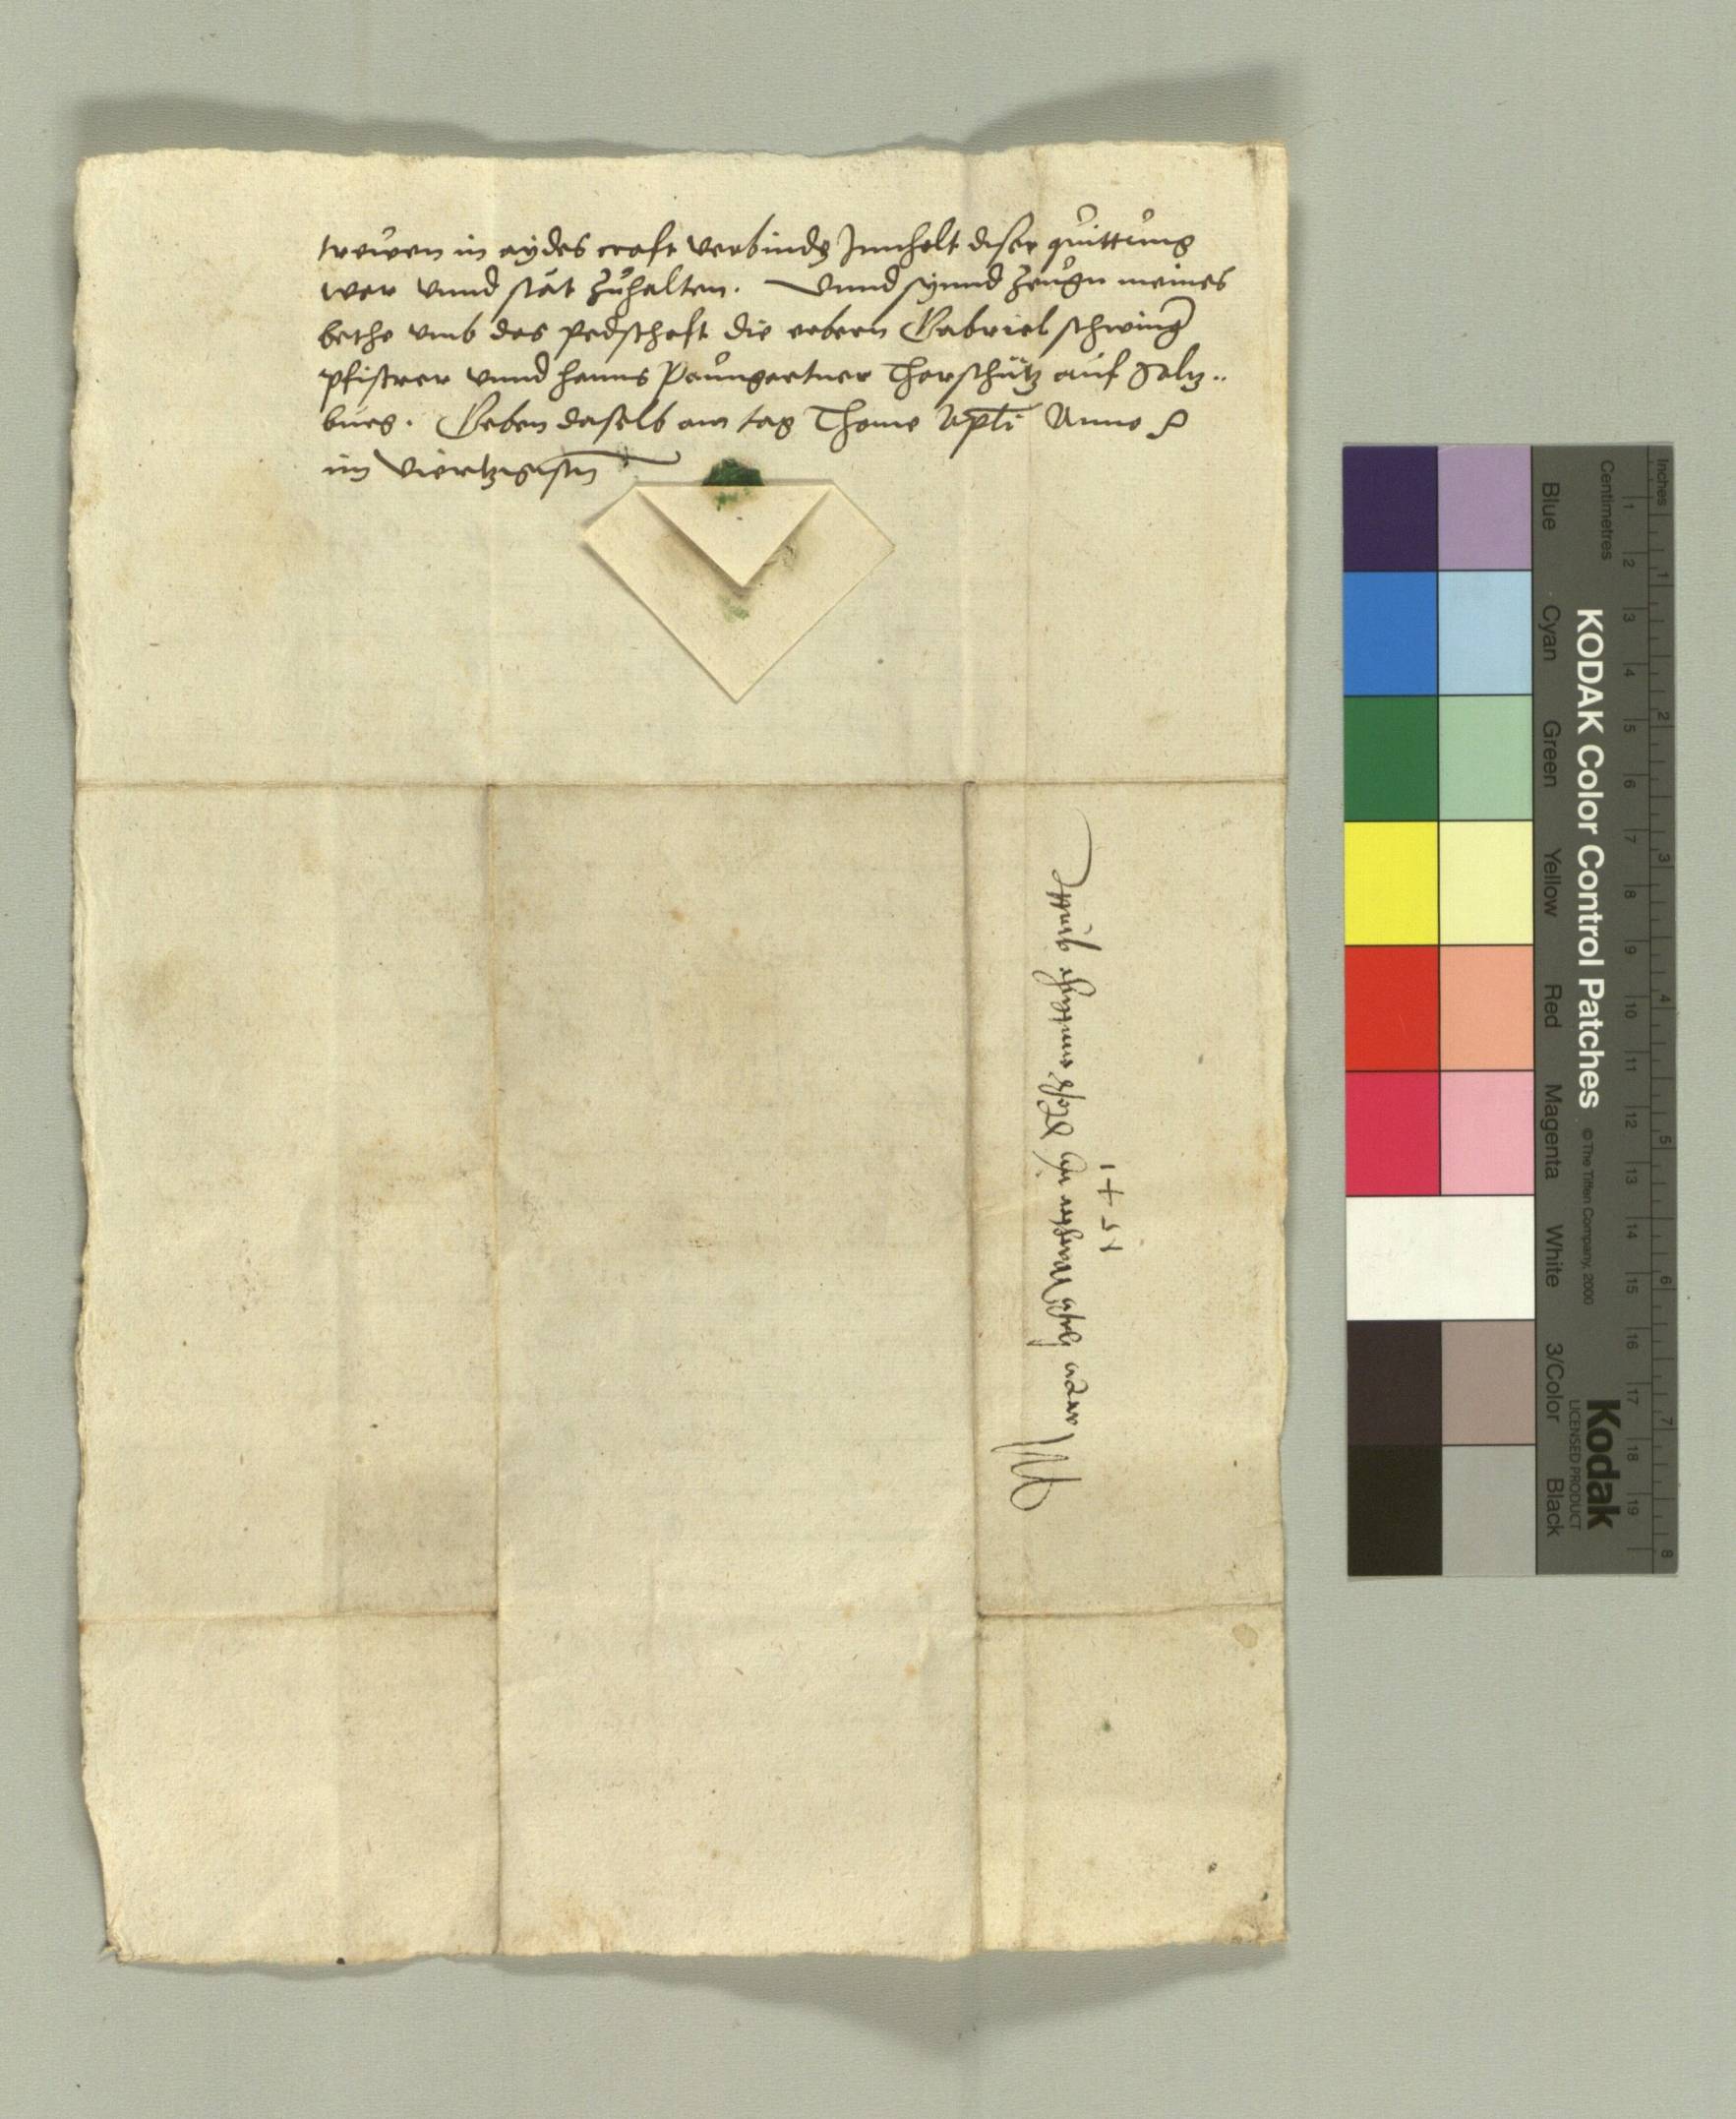 trewen in aydes craft verbind Innhalt diser quittung
war vnnd stät zuhalten. Vnnd synnd zeugn meines
beths vmb das pedschaft die erbern Gabriel schwing
pfistrer vnnd hanns Paungartner Thorschütz auf Saltz..
burg. Geben daselb am tag Thome Apli Anno
im Viertzigistn
1541
Inches
Centimetres
1 2 3 4 5 6 7 8
1 2 3 4 5 6 7 8 9 10 11 12 13 14 15 16 17 18 19
KODAK Color Control Patches © The Tiffen Company, 2000
Kodak
LICENSED PRODUCT
Blue Cyan Green Yellow Red Magenta White 3/Color Black